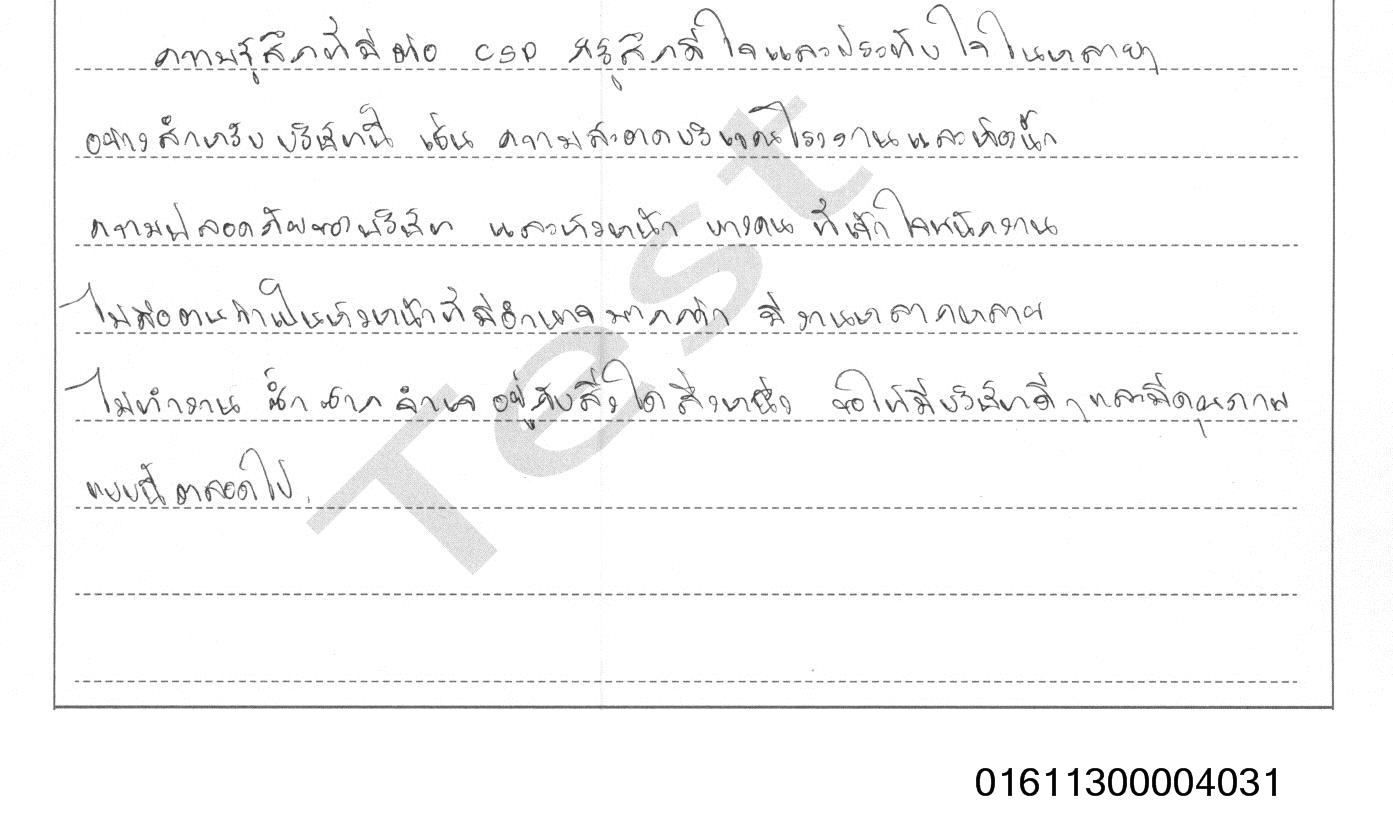 ความรู้สึกที่มีต่อ CSP ก็รู้สึกดีใจและประทับใจในหลายๆ
อย่างสำหรับบริษัทนี้ เช่น ความสะอาดบริเวณโรงงานและห้องน้ำ
ความปลอดภัยของบริษัท และหัวหน้า บางคน ที่เข้าใจพนักงาน
ไม่ถือตนว่าเป็นหัวหน้าที่มีอำนาจมากกว่า มีงานหลากหลาย
ไม่ทำงาน ซ้ำซาก จำเจ อยู่กับสิ่งใดสิ่งหนึ่ง ขอให้มีบริษัทดีๆและมีคุณภาพ
แบบนี้ตลอดไป.
Test
01611300004031